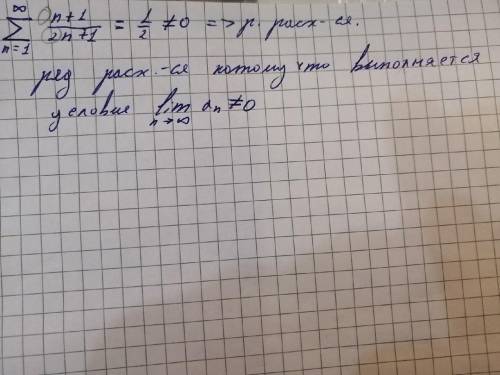 ∞ ∑ n=1 n+1/2n+1 = 1/2 ≠ 0 => р. расх-ся.
ряд расх.-ся потому что выполняется
условие lim n→∞ an ≠ 0